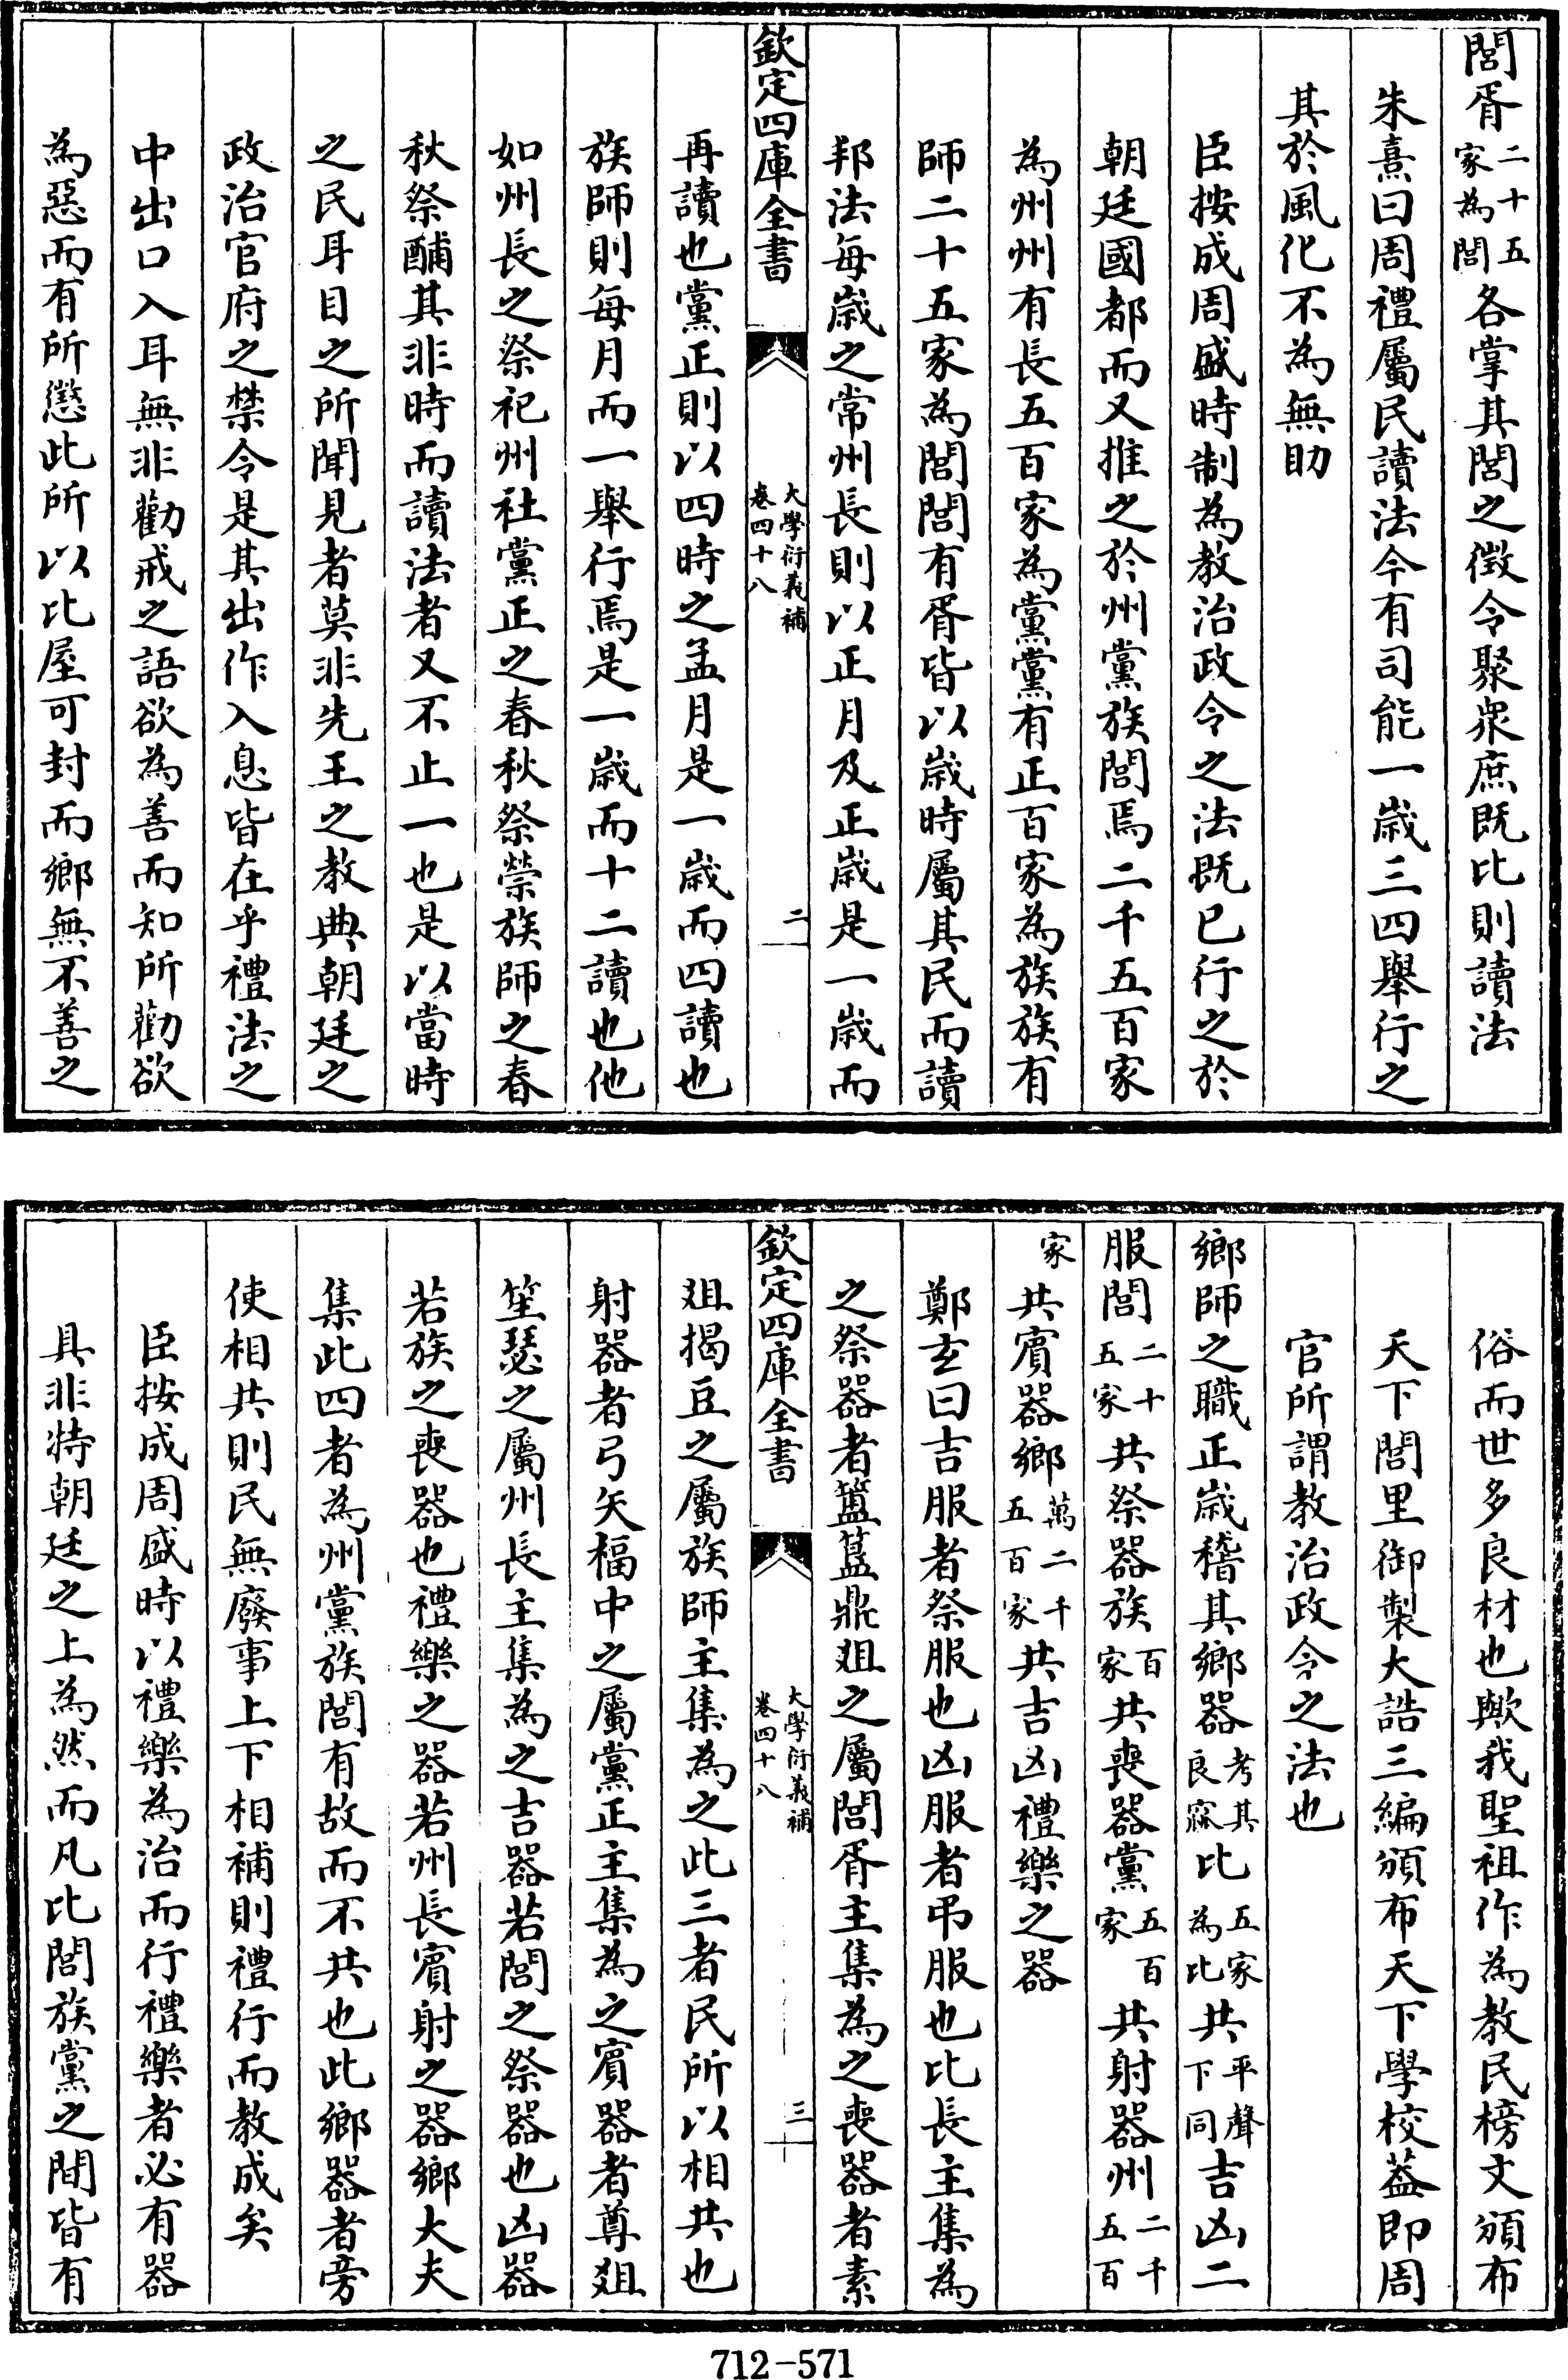 閭胥二十五家為閭各掌其閭之徵令聚衆庶既比則讀法
朱熹曰周禮屬民讀法今有司能一歲三四舉行之
其於風化不為無助
臣按成周盛時制為教治政令之法既已行之於
朝廷國都而又推之於州黨族閭焉二千五百家
為州州有長五百家為黨黨有正百家為族族有
師二十五家為閭閭有胥皆以歲時屬其民而讀
邦法每歲之常州長則以正月及正歲是一歲而
欽定四庫全書
大學衍義補
卷四十八
二
再讀也黨正則以四時之孟月是一歲而四讀也
族師則每月而一舉行焉是一歲而十二讀也他
如州長之祭祀州社黨正之春秋祭禜族師之春
秋祭酺其非時而讀法者又不止一也是以當時
之民耳目之所聞見者莫非先王之教典朝廷之
政治官府之禁令是其出作入息皆在乎禮法之
中出口入耳無非勸戒之語欲為善而知所勸欲
為惡而有所懲此所以比屋可封而鄉無不善之
俗而世多良材也歟我聖祖作為教民榜文頒布
天下閭里御製大誥三編頒布天下學校葢即周
官所謂教治政令之法也
鄉師之職正歲稽其鄉器考其良窳比五家為比共平聲下同吉凶二
服閭二十五家共祭器族百家共喪器黨五百家共射器州二千五百
家共賓器鄉萬二千五百家共吉凶禮樂之器
鄭玄曰吉服者祭服也凶服者弔服也比長主集為
之祭器者簠簋鼎俎之屬閭胥主集為之喪器者素
欽定四庫全書
大學衍義補
卷四十八
三
俎揭豆之屬族師主集為之此三者民所以相共也
射器者弓矢楅中之屬黨正主集為之賓器者尊俎
笙瑟之屬州長主集為之吉器若閭之祭器也凶器
若族之喪器也禮樂之器若州長賓射之器鄉大夫
集此四者為州黨族閭有故而不共也此鄉器者旁
使相共則民無廢事上下相補則禮行而教成矣
臣按成周盛時以禮樂為治而行禮樂者必有器
具非特朝廷之上為然而凡比閭族黨之間皆有
712-571